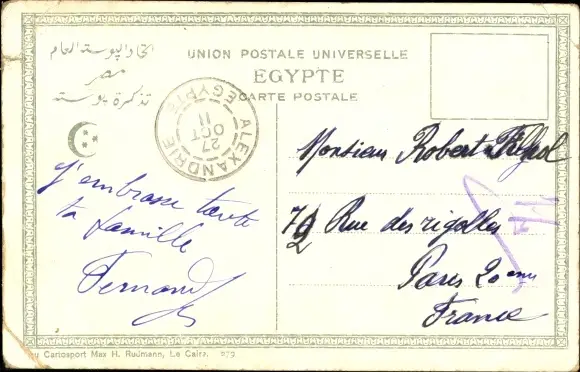 اتحاد البوسته العام
مصر
تذكرة بوسته
UNION POSTALE UNIVERSELLE
EGYPTE
CARTE POSTALE
ALEXANDRIE
EGYPTE
27
OCT
11
J'embrasse toute
ta famille
Fernand
Monsieur Robert
72 Rue des rigolles
Paris 20 eme
France
Cartosport Max H. Rudmann, Le Caire.